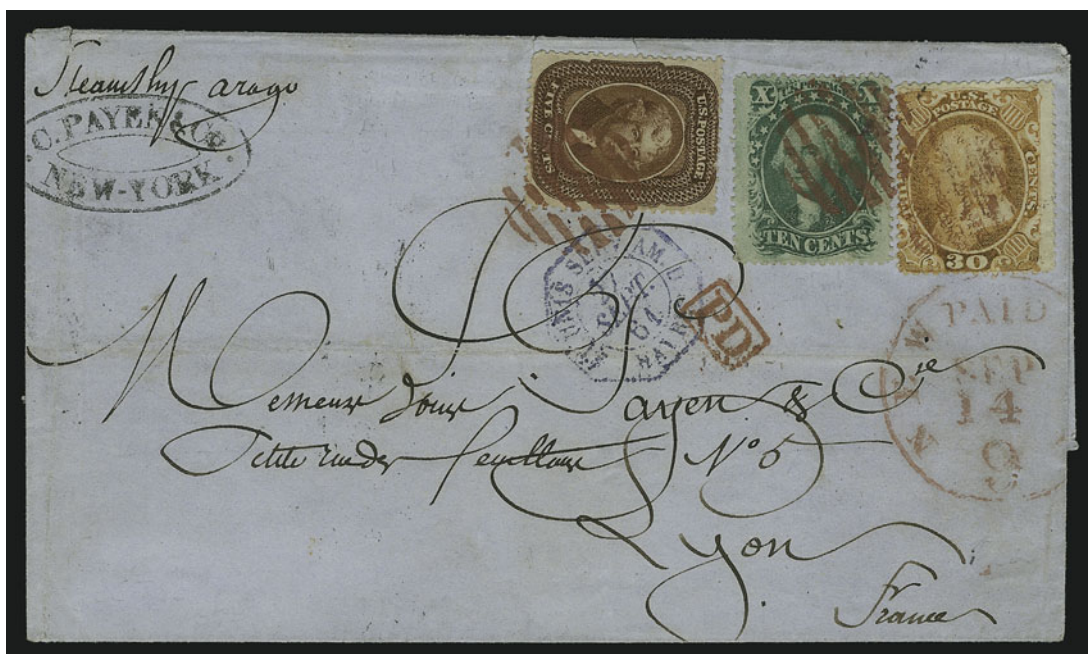 Steamship arago
C. PAYEN & Co
NEW-YORK
U.S. POSTAGE
FIVE CENTS
X U.S. POSTAGE X
TEN CENTS
U.S.
POSTAGE
CENTS
30
SEPT.
61
HAVRE
PD
NEW
PAID
SEP
14
9
Messieurs Louis Payen & Cie
Petite rue des Feuillans No 5
Lyon
France